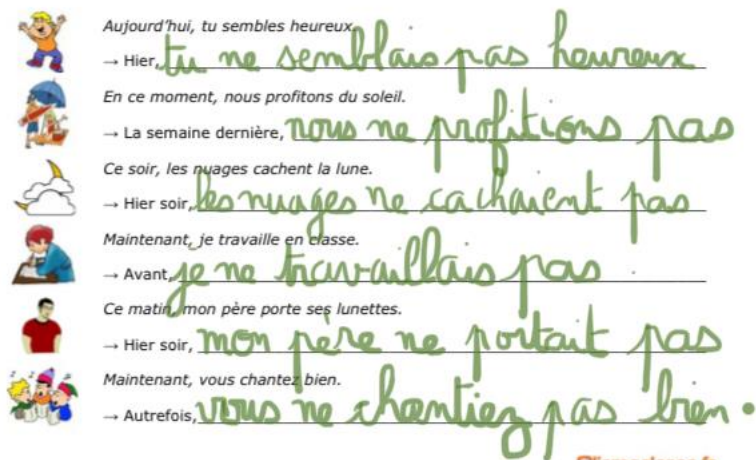 Aujourd'hui, tu sembles heureux.
→ Hier, tu ne semblais pas heureux
En ce moment, nous profitons du soleil.
→ La semaine dernière, nous ne profitions pas
Ce soir, les nuages cachent la lune.
→ Hier soir, les nuages ne cachaient pas
Maintenant, je travaille en classe.
→ Avant, je ne travaillais pas
Ce matin, mon père porte ses lunettes.
→ Hier soir, mon père ne portait pas
Maintenant, vous chantez bien.
→ Autrefois, vous ne chantiez pas bien.